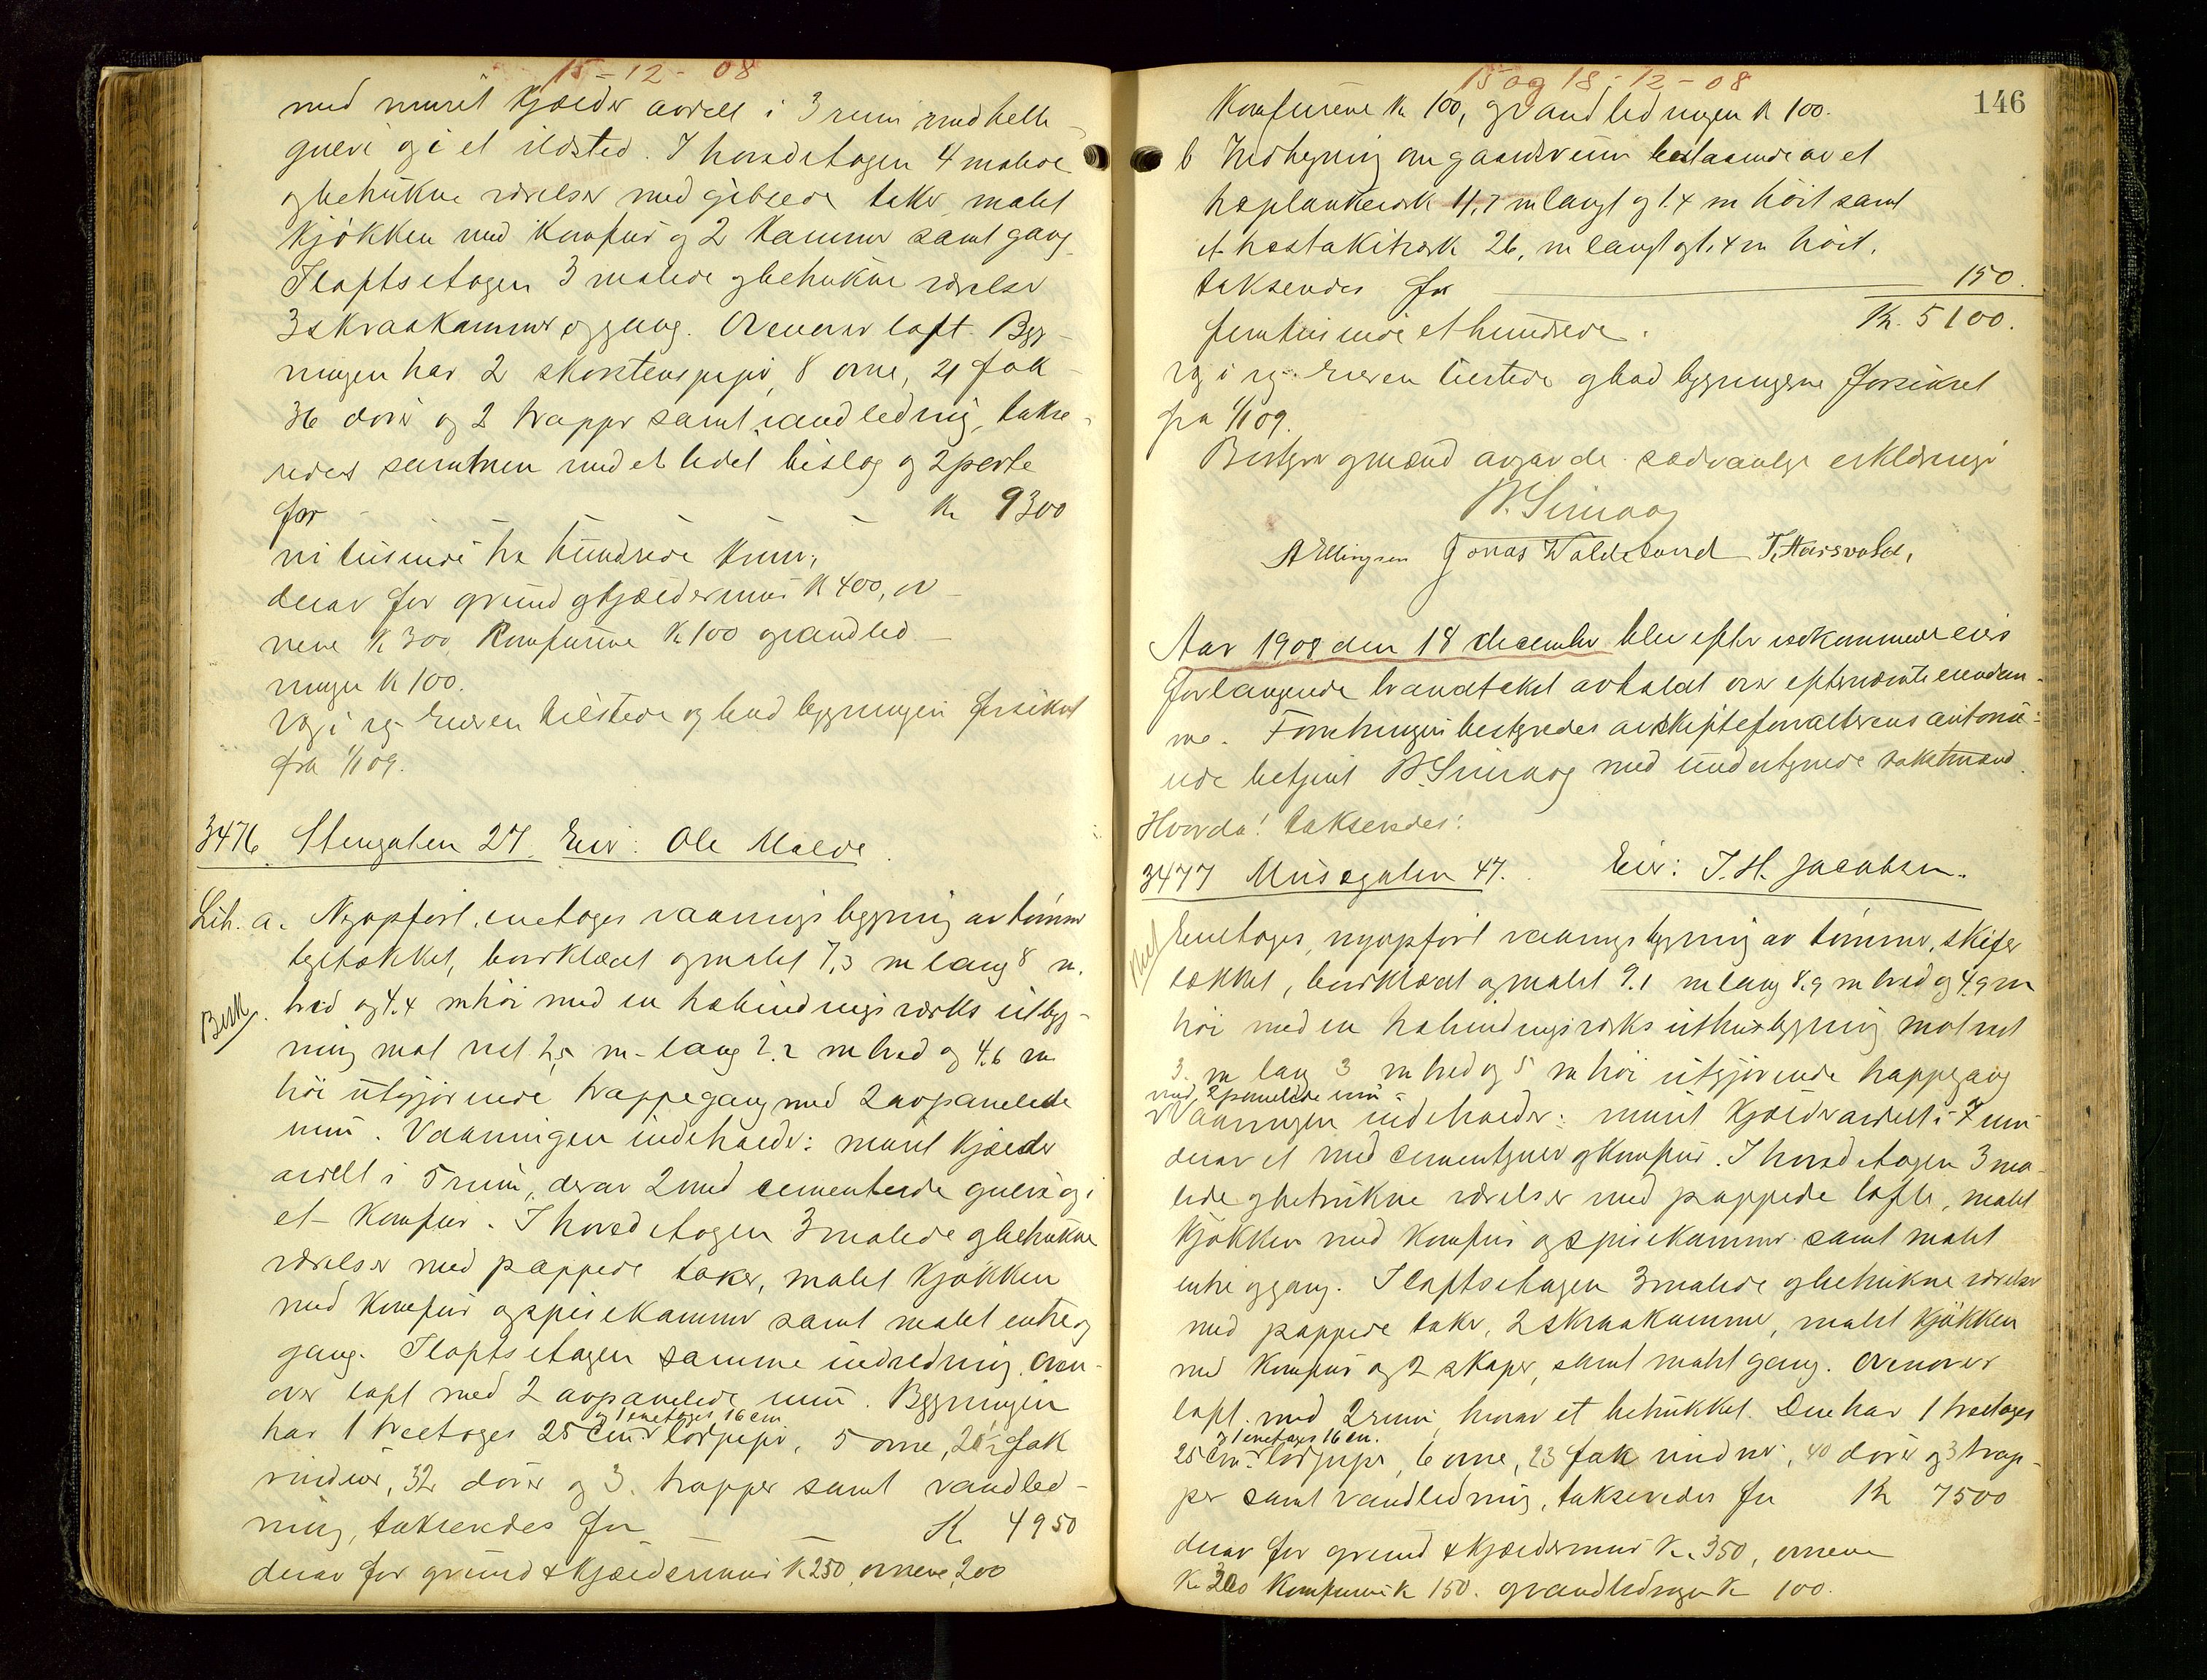 15-12-08
med muret kjælder avdelt i 3 rum med helle-
gulv og i et ildsted. I hovedetagen 4 malede
og betrukne værelser med gibsede taker, malet
kjøkken med komfur og 2 kammer samt gang.
I loftsetagen 3 malede og betrukne værelser
3 skraakammer og gang. Ovenover loft. Byg-
ningen har 2 skorstenspiper, 8 ovne, 21 fak
36 dører og 2 trapper samt vandledning, takse-
redes sammen med et lidet bislag og 2 porte
for - - - - Kr 9300
ni tusinde tre hundrede kroner,
derav for grund og kjældermur K 400, ov-
nene K 300, Komfurene K 100 og vandled-
ningen K 100.
Vej i rg. Eieren tilstede og bad bygningen forsikret
fra 1/1 09.
3476. Stengaten 27. Eier: Ole Malde.
Lit. a. Nyopført, enetages vaaningsbygning av tømmer
tegltækket, bordklædt og malet 7,3 m lang 8 m.
Besk.
bred og 4.4 m høi med en halvindingsverks utbyg-
ning mot vest 2,5 m lang 2.2 m bred og 4.6 m
høi utgjørende trappegang med 2 avpanelede
rum. Vaaningen indeholder: muret kjælder
avdelt i 5 rum, derav 2 med cementerede gulve og i
et komfur. I hovedetagen 3 malede og betrukne
værelser med pappede taker, malet kjøkken
med komfur og spisekammer samt malet entre og
gang. I loftsetagen samme indredning. Oven-
over loft med 2 avpanelede rum. Bygningen
og 1 enetages 16 cm
har 1 treetages 25 cm's lodpipe, 5 ovne, 20 1/2 fak
vinduer, 32 dører og 3. trapper samt vandled-
ning, takseredes for - - K. 4950
derav for grund & kjældermur K 250, ovnene 200
15 og 18-12-08
146
Komfurene K 100, og vandledningen K 100.
b Indhegning om gaardsrum bestaaende av et
træplankeverk 11,7 m langt og 1.4 m høit samt
et træstakitverk 26, m langt og 1.4 m høit,
takseredes for 150.
femtusinde et hundrede. Kr. 5100.
Vej i rg. Eieren tilstede og bad bygningene forsikret
fra 1/1 09.
Bestyrer og mænd avgav de sædvanlige erklæringer
A Ellingsen Jonas Waldeland
Aar 1908 den 18 december blev efter vedkommende eiers
forlangende brandtakst avholdt over efternævnte eiendom-
me. Forretningen bestyredes av skifteforvalterens autorise-
rede betjent med undertegnede takstmænd.
Hvorda! takseredes!
3477 Musegaten 47. Eier: T. H. Jacobsen.
Enetages, nyopført vaaningsbygning av tømmer, skifer
tækket, bordklædt og malet 9.1 m lang 8.9 m bred og 4.9 m
høi med en halvindingsverks uthusbygning mot vest
3. m lang 3 m bred og 5 m høi utgjørende trappegang
med 2 panelede rum.
Vaaningen indeholder: muret kjælder avdelt i 7 rum
derav et med cementgulv og komfur. I hovedetagen 3 ma-
lede og betrukne værelser med pappede lofte, malet
kjøkken med komfur og spisekammer samt malet
entre og gang. I loftsetagen 3 malede og betrukne værelser
med pappede taker, 2 skraakammer, malet kjøkken
med komfur og 2 skaper, samt malet gang. Ovenover
loft med 2 rum, hvorav et betrukket. Den har 1 treetages
og 1 enetages 16 cm.
25 cm's lodpipe, 6 ovne, 23 fak vinduer, 40 dører og 3 trap-
per samt vandledning, takseredes for Kr 7500
derav for grund & kjældermur K. 350, ovnene
K. 300 komfurene K 150. og vandledningen K 100.